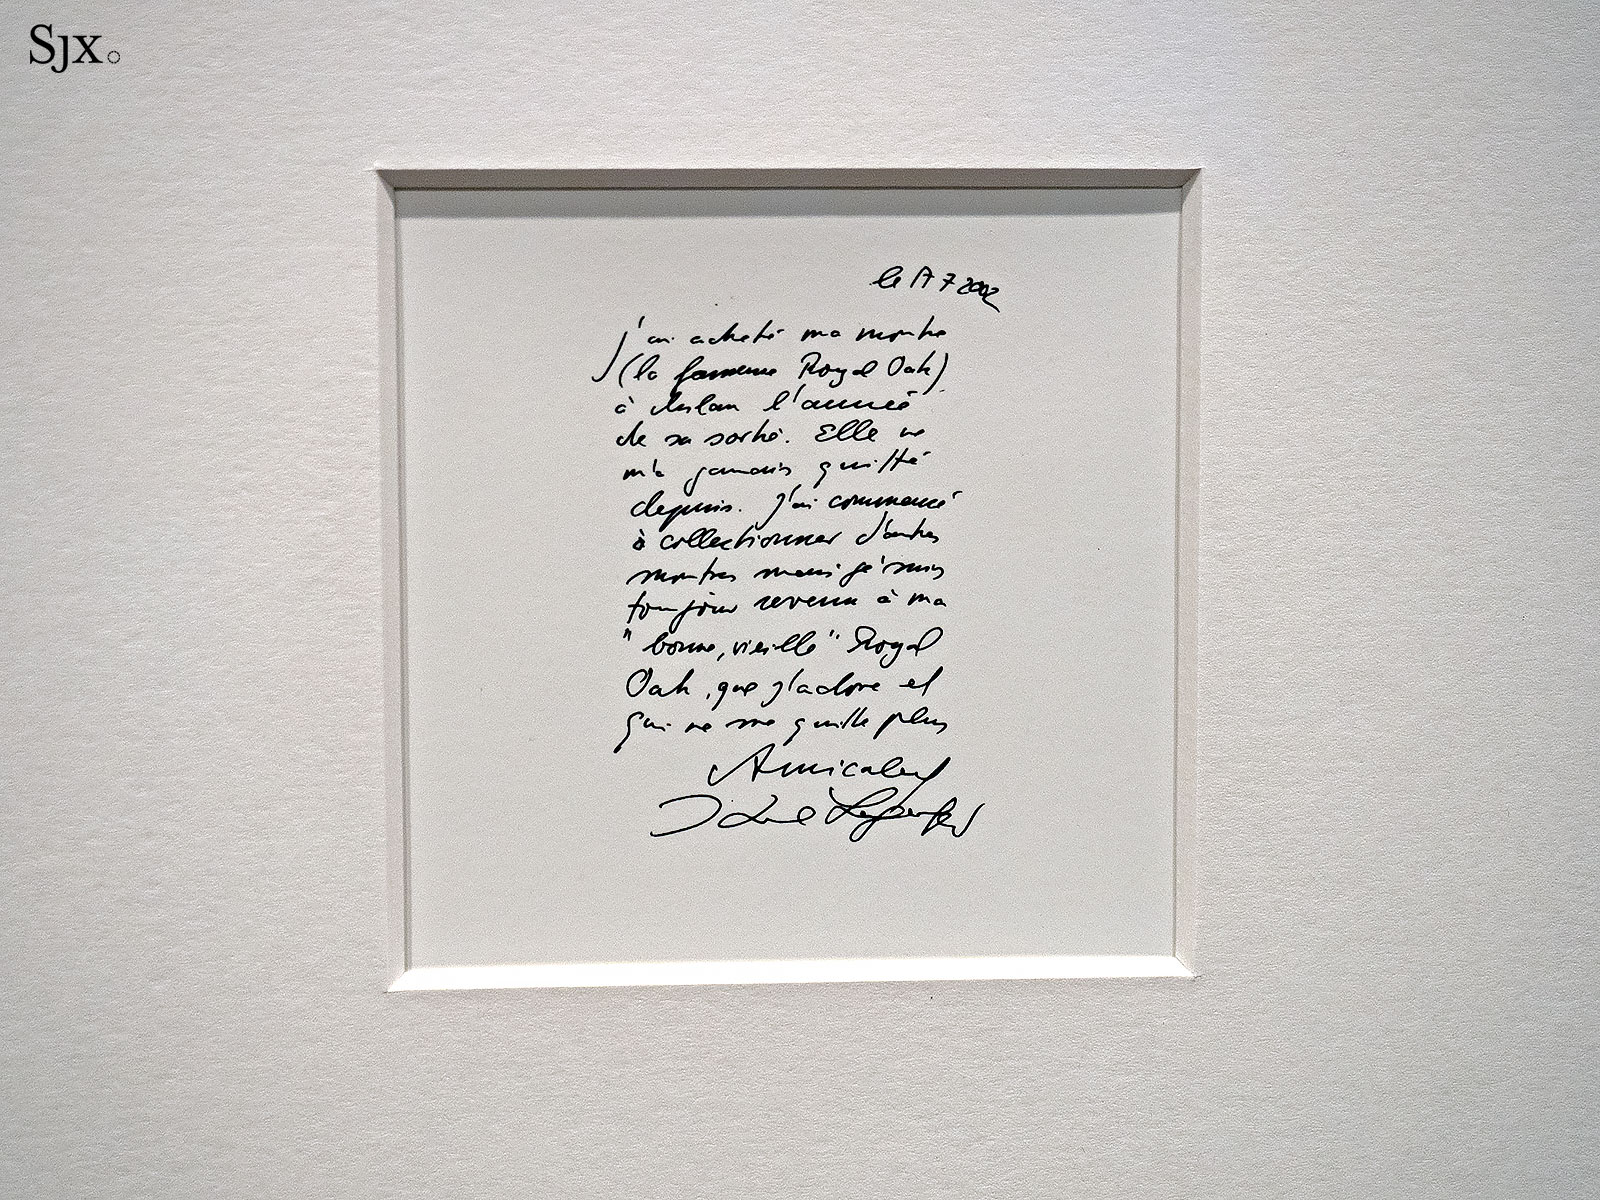 SJX
le 17 7 2002
j'ai acheté ma montre
(la fameuse Royal Oak)
à Milan l'année
de sa sortie. Elle ne
m'a jamais quitté
depuis. J'ai commencé
à collectionner d'autres
montres mais je suis
toujours revenu à ma
"bonne, vieille" Royal
Oak, que j'adore et
qui ne me quitte plus
Amicalement